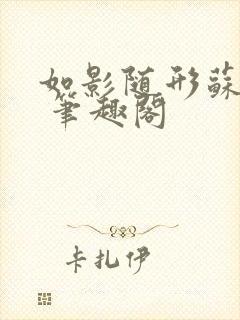 如影随形蘇
笔趣閣
卡扎伊